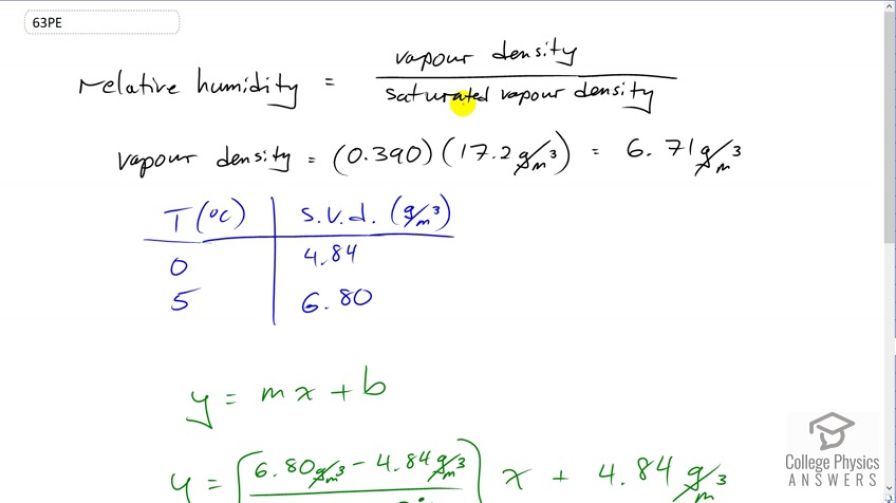 63PE
relative humidity = vapour density / saturated vapour density
vapour density = (0.390)(17.2 g/m³) = 6.71 g/m³
T(°C) | s.v.d. (g/m³)
0 | 4.84
5 | 6.80
y = mx + b
y = [6.80 g/m³ - 4.84 g/m³] x + 4.84 g/m³
College Physics
ANSWERS